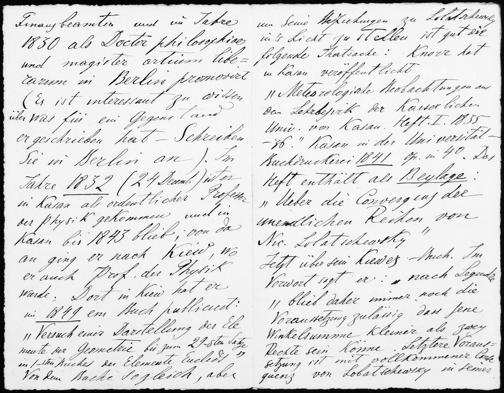 Finanzbeamten und im Jahre
1830 als Doctor philosophiae
und magister artium libe-
ralium in Berlin promoviert
(Es ist interessant zu wissen
über was für ein Gegenstand
er geschrieben hat – Schreiben
Sie in Berlin an). Im
Jahre 1832 (24 Decemb.) ist er
in Kasan als ordentlicher Professor
der Physik gekommen und in
Kasan bis 1843 blieb; von da
an ging er nach Kiew, wo
er auch Prof. der Physik
wurde. Dort in Kiew hat er
im 1849 ein Buch publiciert:
„Versuch einer Darstellung der Ele-
mente der Geometrie bis zum 29-sten Satze
im I-sten Buches der Elemente Euclids"
Von dem Buche sogleich, aber
um seine Beziehungen zu Lobatschewsky
in's Licht zu stellen ist gut die
folgende Thatsache: Knorr hat
in Kasan veröffentlicht
„Meteorologische Beobachtungen aus
dem Lehrbezirk der Kaiserlichen
Univ. von Kasan. Heft I. 1835
–36." Kasan in der Universität-
Buchdruckerei 1841 in 4°. Das
Heft enthält als Beylage:
„Ueber die Convergenz der
unendlichen Reihen von
Nic. Lobatschewsky"
Jetzt über sein Kiewer Buch. Im
Vorwort sagt er: „nach Legendre
„bleibt daher immer noch die
Voraussetzung zulässig dass jene
Winkelsumme kleiner als zwey
Rechte sein könne. Letztere Voraus-
setzung ist mit vollkommener Conse-
quenz von Lobatschewsky in seiner